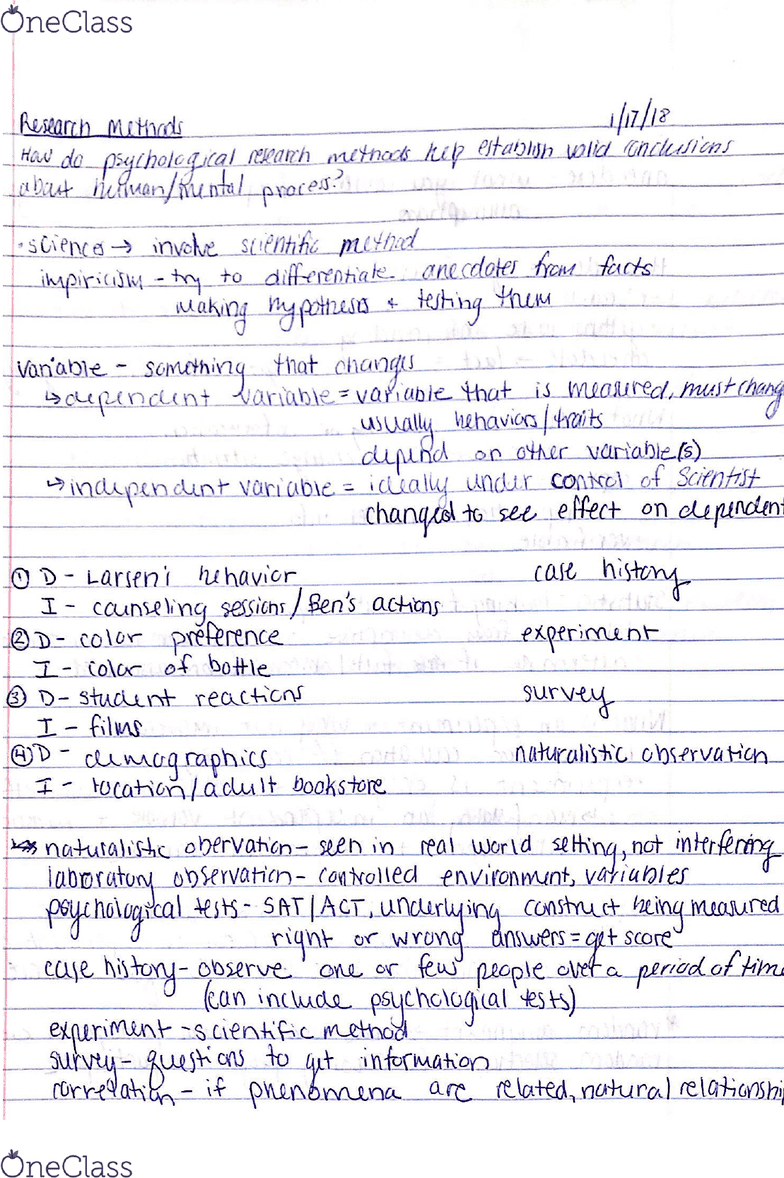 OneClass
1/17/18
Research Methods
How do psychological research methods help establish valid conclusions
about human/mental process?
·science → involve scientific method
impiricism - try to differentiate anecdotes from facts
making hypothesis + testing them
variable - something that changes
↳dependent variable = variable that is measured, must chang
usually behaviors/traits
depend on other variable(s)
↳independent variable = ideally under control of Scientist
changed to see effect on dependent
① D - Larseni behavior case history
I - counseling sessions/Ben's actions
② D - color preference experiment
I - color of bottle
③ D - student reactions survey
I - films
④ D - demographics naturalistic observation
I - location/adult bookstore
naturalistic obervation - seen in real world setting, not interfering
laboratory observation - controlled environment, variables
psychological tests - SAT/ACT, underlying construct being measured
right or wrong answers = get score
case history - observe one or few people over a period of time
(can include psychological tests)
experiment - scientific method
survey - questions to get information
correlation - if phenomena are related, natural relationshi
OneClass